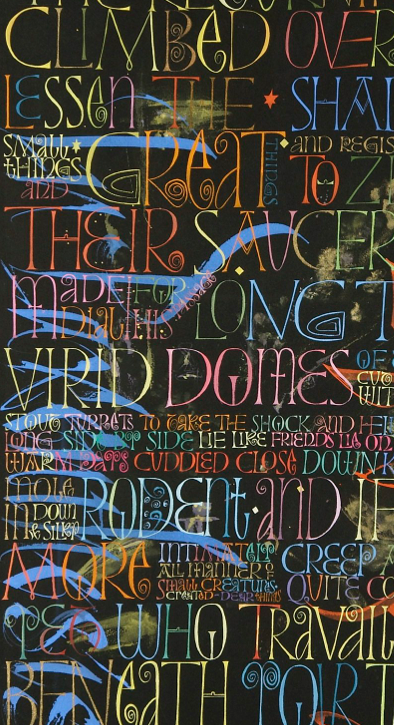 CLIMBED OVER
LESSEN THE SHA
SMALL THINGS AND GREAT THINGS AND REGIS
TO Z
THEIR SAUCER
MADE FOR LONG T
VIRID DOMES OF CUT WIT
STOUT TURRETS TO TAKE THE SHOCK AND HE
LONG SIDE BY SIDE LIE LIKE FRIENDS LIE ON
WARM DAYS CUDDLED CLOSE DOWN K
MOLE IN DOWN & SILKY RODENT AND TH
MORE INTIMATELY CREEP A
ALL MANNER OF
SMALL CREATURES QUITE CO
WHO TRAVAIL
BENEATH